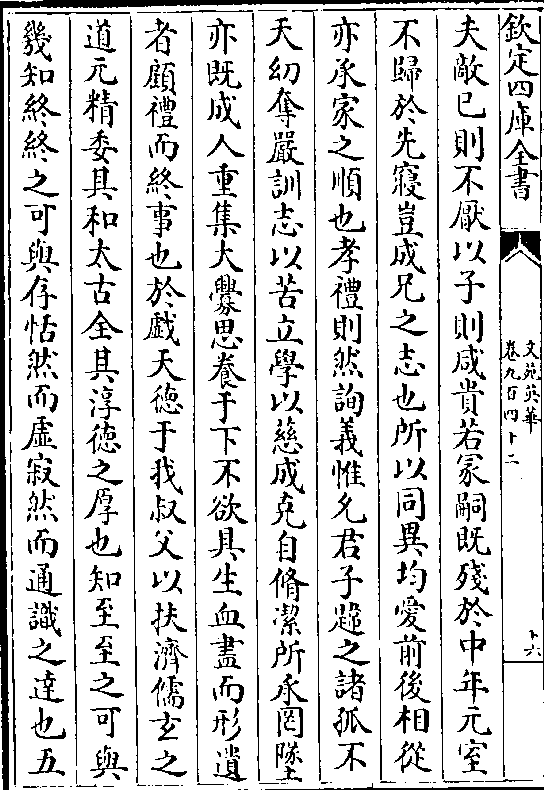 欽定四庫全書
文苑英華
卷九百四十二
十六
夫敵已則不厭以子則咸貴若冢嗣既殘於中年元室
不歸於先寢豈成兄之志也所以同異均愛前後相從
亦承家之順也孝禮則然詢義惟允君子韙之諸孤不
天幼奪嚴訓志以苦立學以慈成克自脩潔所承罔墜
亦既成人重集大釁思養于下不欲具生血盡而形遺
者顧禮而終事也於戲天德于我叔父以扶濟儒玄之
道元精委其和太古全其淳德之厚也知至至之可與
幾知終終之可與存怙然而虛寂然而通識之達也五